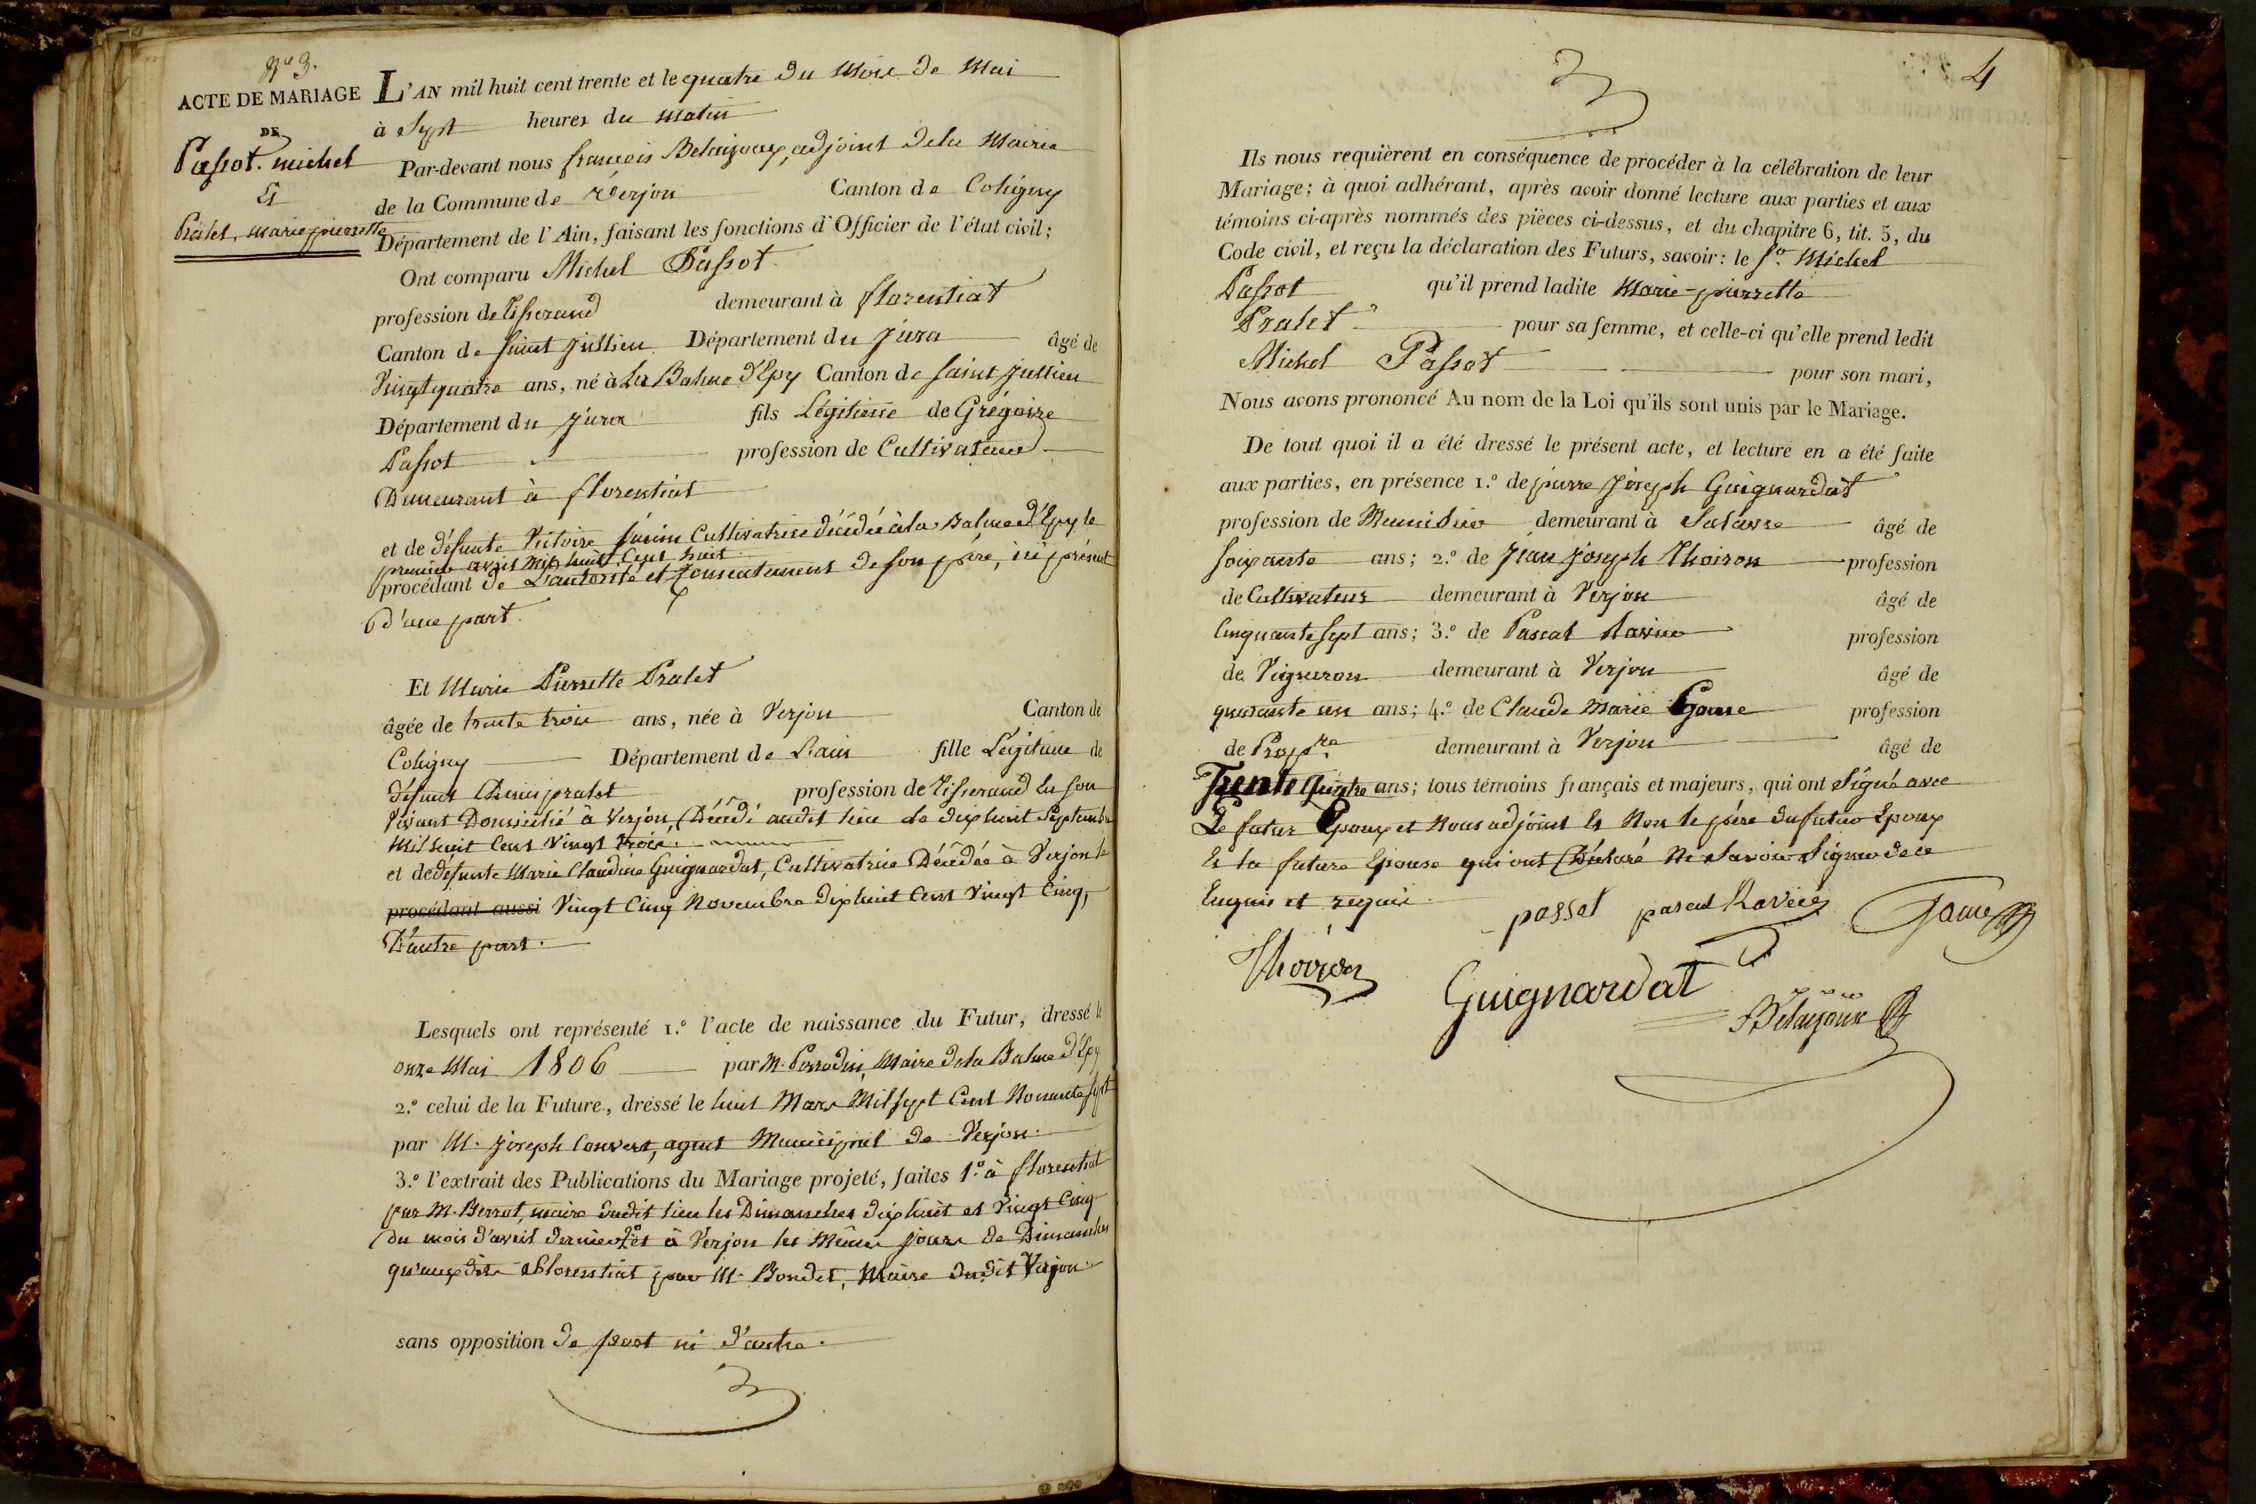 N.º 3.
ACTE DE MARIAGE
DE
Passot. michel
Et
Pralet, marie pierrette
L'AN mil huit cent trente et le quatre du Mois de Mai
à Sept heures du matin
Par-devant nous françois Belaizoux, adjoint dela Mairie
de la Commune de Verjon Canton de Coligny
Département de l'Ain, faisant les fonctions d'Officier de l'état civil;
Ont comparu Michel Passot
profession de tisserand demeurant à florentiat
Canton de saint jullien Département du jura âgé de
Vingt quatre ans, né à La Balme d'Epy Canton de saint jullien
Département du jura fils Légitime de Grégoire
Passot profession de Cultivateur
Demeurant à florentiat
et de défunte Victoire Cultivatrice décédée à la Balme d'Epy le
premier avril mil huit Cent huit
procédant de L'autorité et Consentement de son père, ici présent
d'une part.
Et Marie Pierrette Pralet
âgée de trente trois ans, née à Verjon Canton de
Coligny Département de Lain fille Légitime de
défunt Denis pralet profession de tisserand En son
Vivant Domicilié à Verjon, Décédé audit lieu le dix huit Septembre
Mil huit Cent Vingt trois.
et de défunte Marie Claudine Guignardat, Cultivatrice Décédée à Verjon le
procédant aussi Vingt Cinq Novembre dix huit Cent Vingt Cinq,
D'autre part.
Lesquels ont représenté 1.º l'acte de naissance du Futur, dressé le
onze Mai 1806 par M. Perrodin, Maire dela Balme d'Epy
2.º celui de la Future, dressé le huit Mars Mil sept Cent Nonante sept
par M. Joseph Convert, agent Municipal de Verjon.
3.º l'extrait des Publications du Mariage projeté, faites 1.º à florentiat
par M. Berrot, maire dudit lieu les Dimanches dix huit et Vingt Cinq
du mois d'avril dernier 2º et à Verjon les Même jours de Dimanches
qu'aux dits florentiat par M. Bondet, Maire dudit Verjon.
sans opposition de part ni d'autre.
3
4
Ils nous requièrent en conséquence de procéder à la célébration de leur
Mariage; à quoi adhérant, après avoir donné lecture aux parties et aux
témoins ci-après nommés des pièces ci-dessus, et du chapitre 6, tit. 5, du
Code civil, et reçu la déclaration des Futurs, savoir: le s.r Michel
Passot qu'il prend ladite Marie-pierrette
Pralet pour sa femme, et celle-ci qu'elle prend ledit
Michel Passot pour son mari,
Nous avons prononcé Au nom de la Loi qu'ils sont unis par le Mariage.
De tout quoi il a été dressé le présent acte, et lecture en a été faite
aux parties, en présence 1.º de pierre Joseph Guignardat
profession de Menuisier demeurant à Salavre âgé de
soixante ans; 2.º de Jean Joseph Thoiron profession
de Cultivateur demeurant à Verjon âgé de
Cinquante sept ans; 3.º de Pascal Ravier profession
de Vigneron demeurant à Verjon âgé de
quarante un ans; 4.º de Claude Marie Game profession
de Prop.re demeurant à Verjon âgé de
Trente quatre ans; tous témoins français et majeurs, qui ont Signé avec
Le futur Epoux et Nous adjoint Et Non le père du futur Epoux
Et la future Epouse qui ont Déclaré Ne Savoir Signer de ce
Enquis et requis.
passot pascal Ravier Game
Thoiron
Guignardat
Belaizoux